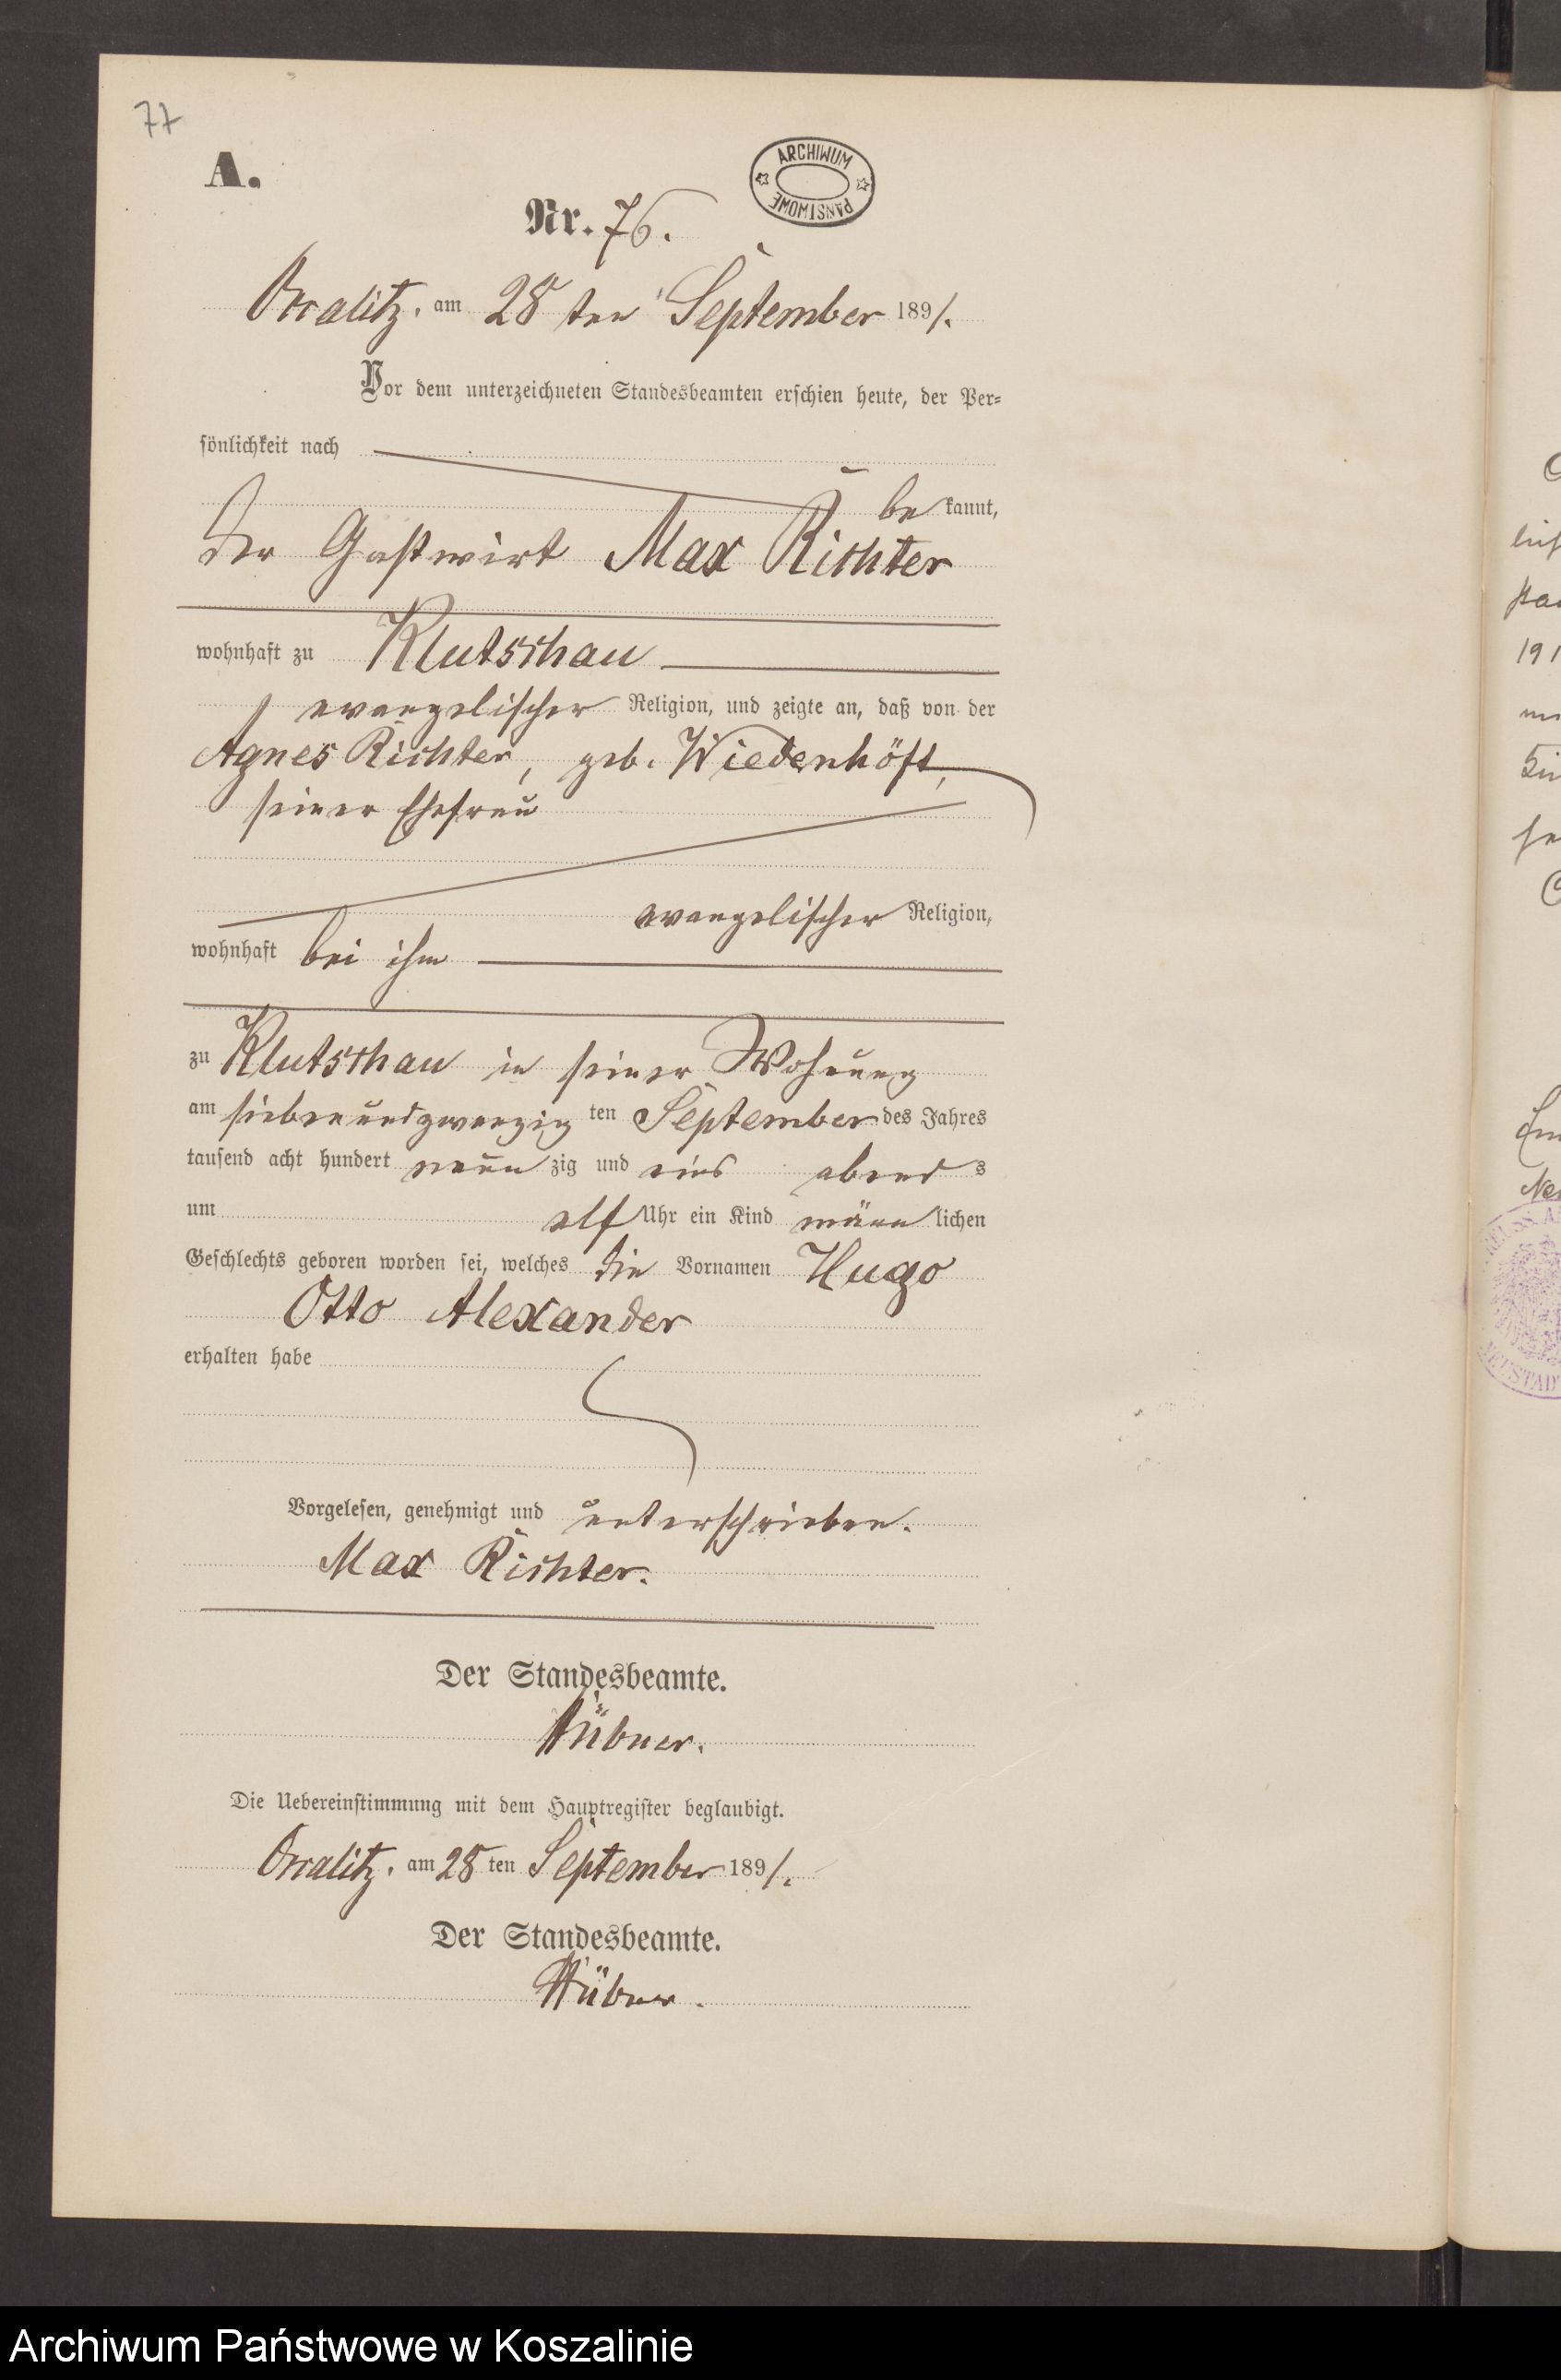 77
A.
ARCHIWUM PAŃSTWOWE
Nr. 76.
Occalitz, am 28 ten September 1891.
Vor dem unterzeichneten Standesbeamten erschien heute, der Per-
sönlichkeit nach
bekannt,
der Gastwirt Max Richter
wohnhaft zu Klutschau
evangelischer Religion, und zeigte an, daß von der
Agnes Richter, geb. Wiedenhöft,
seiner Ehefrau
evangelischer Religion,
wohnhaft bei ihm
zu Klutschau in seiner Wohnung
am siebenundzwanzigten September des Jahres
tausend acht hundert neunzig und eins abends
um elf Uhr ein Kind männlichen
Geschlechts geboren worden sei, welches die Vornamen Hugo
Otto Alexander
erhalten habe
Vorgelesen, genehmigt und unterschrieben.
Max Richter.
Der Standesbeamte.
Hübner.
Die Uebereinstimmung mit dem Hauptregister beglaubigt.
Occalitz, am 28 ten September 1891.
Der Standesbeamte.
Hübner.
191
NEUSTAD
Archiwum Państwowe w Koszalinie